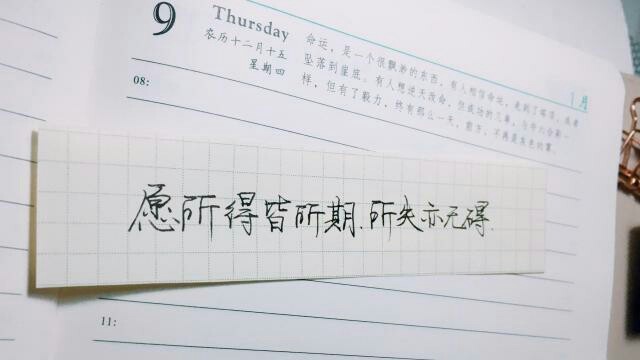 9
Thursday
农历十二月十五
星期四
1月
命运，是一个很飘渺的东西，有人相信命运，走到了塔顶，或者
坠落到崖底。有人想逆天改命，但成功的几率，与中六合彩一
样，但有了毅力，终有那么一天，前方，不再是灰色的雾。
08:
愿所得皆所期、所失亦无碍、
11: